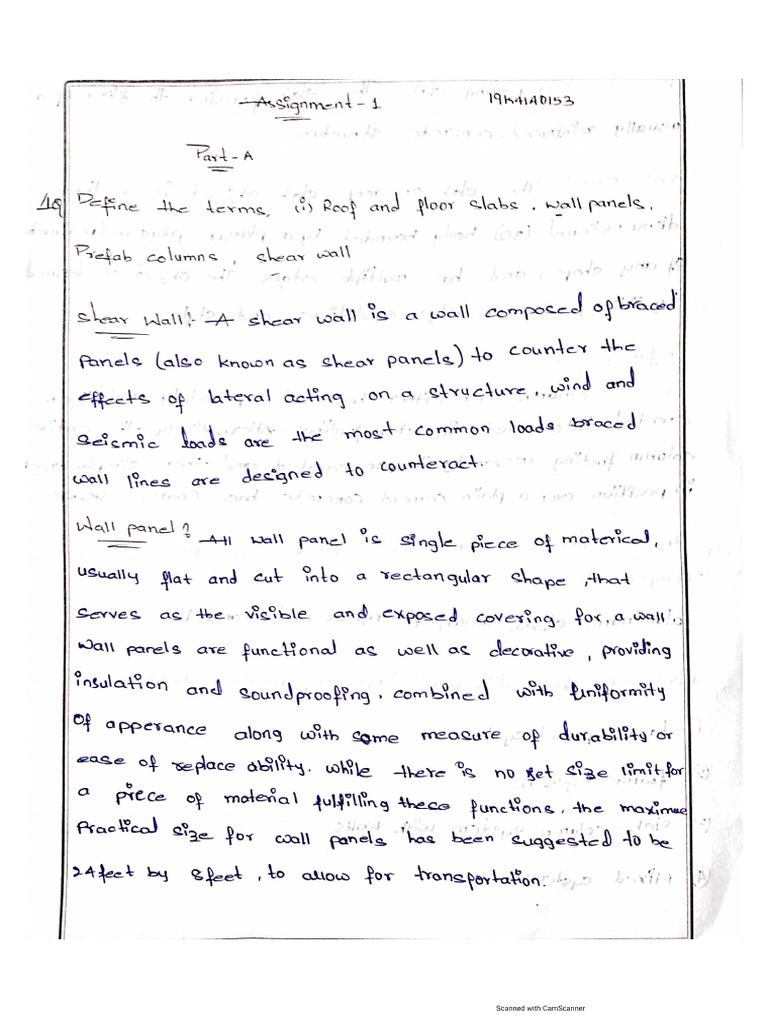 Assignment-1 19K41A0153
Part-A
1Q Define the terms, (i) Roof and floor slabs, wall panels,
Prefab columns, shear wall
Shear Wall:- A shear wall is a wall composed of braced
panels (also known as shear panels) to counter the
effects of lateral acting on a structure, wind and
seismic loads are the most common loads braced
wall lines are designed to counteract.
Wall panel:- A wall panel is single piece of materical,
usually flat and cut into a rectangular shape, that
serves as the visible and exposed covering for a wall.
Wall panels are functional as well as decorative, providing
insulation and soundproofing, combined with uniformity
of apperance along with some measure of durability or
ease of replace ability. While there is no set size limit for
a piece of material fulfilling these functions, the maximum
Practical size for wall panels has been suggested to be
24 feet by 8 feet, to allow for transportation.
Scanned with CamScanner